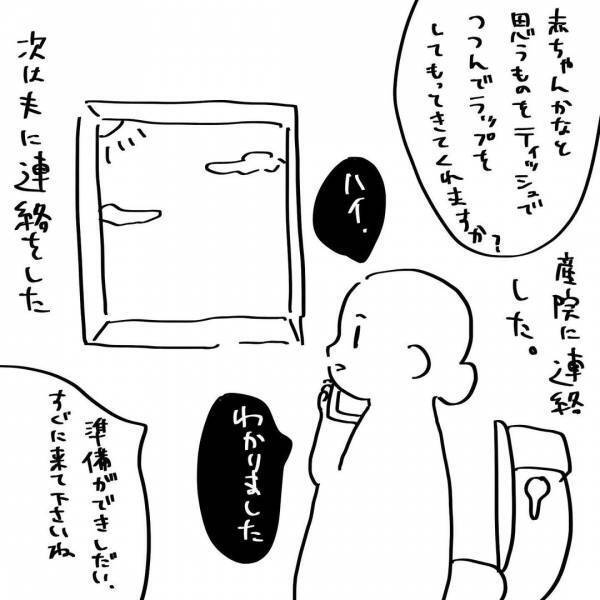 赤ちゃんかなと
思うものをティッシュで
つつんでラップを
してもってきてくれますか?
産院に連絡
した。
ハイ.
わかりました
準備ができしだい、
すぐに来て下さいね
次は夫に連絡をした